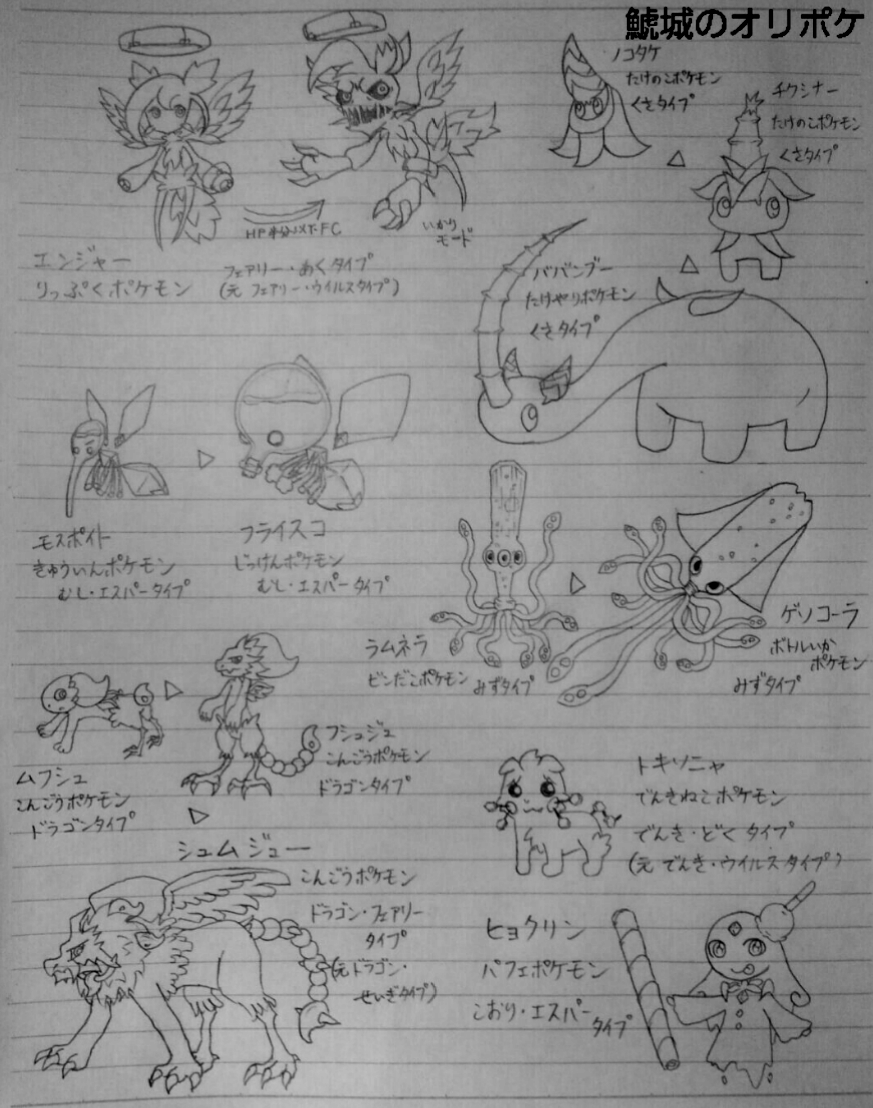 鯱城のオリポケ
エンジャー
りっぷくポケモン
フェアリー・あくタイプ
(元 フェアリー・ウイルスタイプ)
いかり
モード
ノコタケ
たけのこポケモン
くさタイプ
チクシナー
たけのこポケモン
くさタイプ
ババンブー
たけやりポケモン
くさタイプ
モスポイト
きゅういんポケモン
むし・エスパータイプ
フライスコ
じっけんポケモン
むし・エスパータイプ
ラムネラ
ビンだこポケモン
みずタイプ
ゲソコーラ
ボトルいか
ポケモン
みずタイプ
ムフシュ
こんごうポケモン
ドラゴンタイプ
フシュジュ
こんごうポケモン
ドラゴンタイプ
シュムジュー
こんごうポケモン
ドラゴン・フェアリー
タイプ
(元ドラゴン・
せいぎタイプ)
トキソニャ
でんきねこポケモン
でんき・どくタイプ
(元 でんき・ウイルスタイプ)
ヒョクリン
パフェポケモン
こおり・エスパー
タイプ